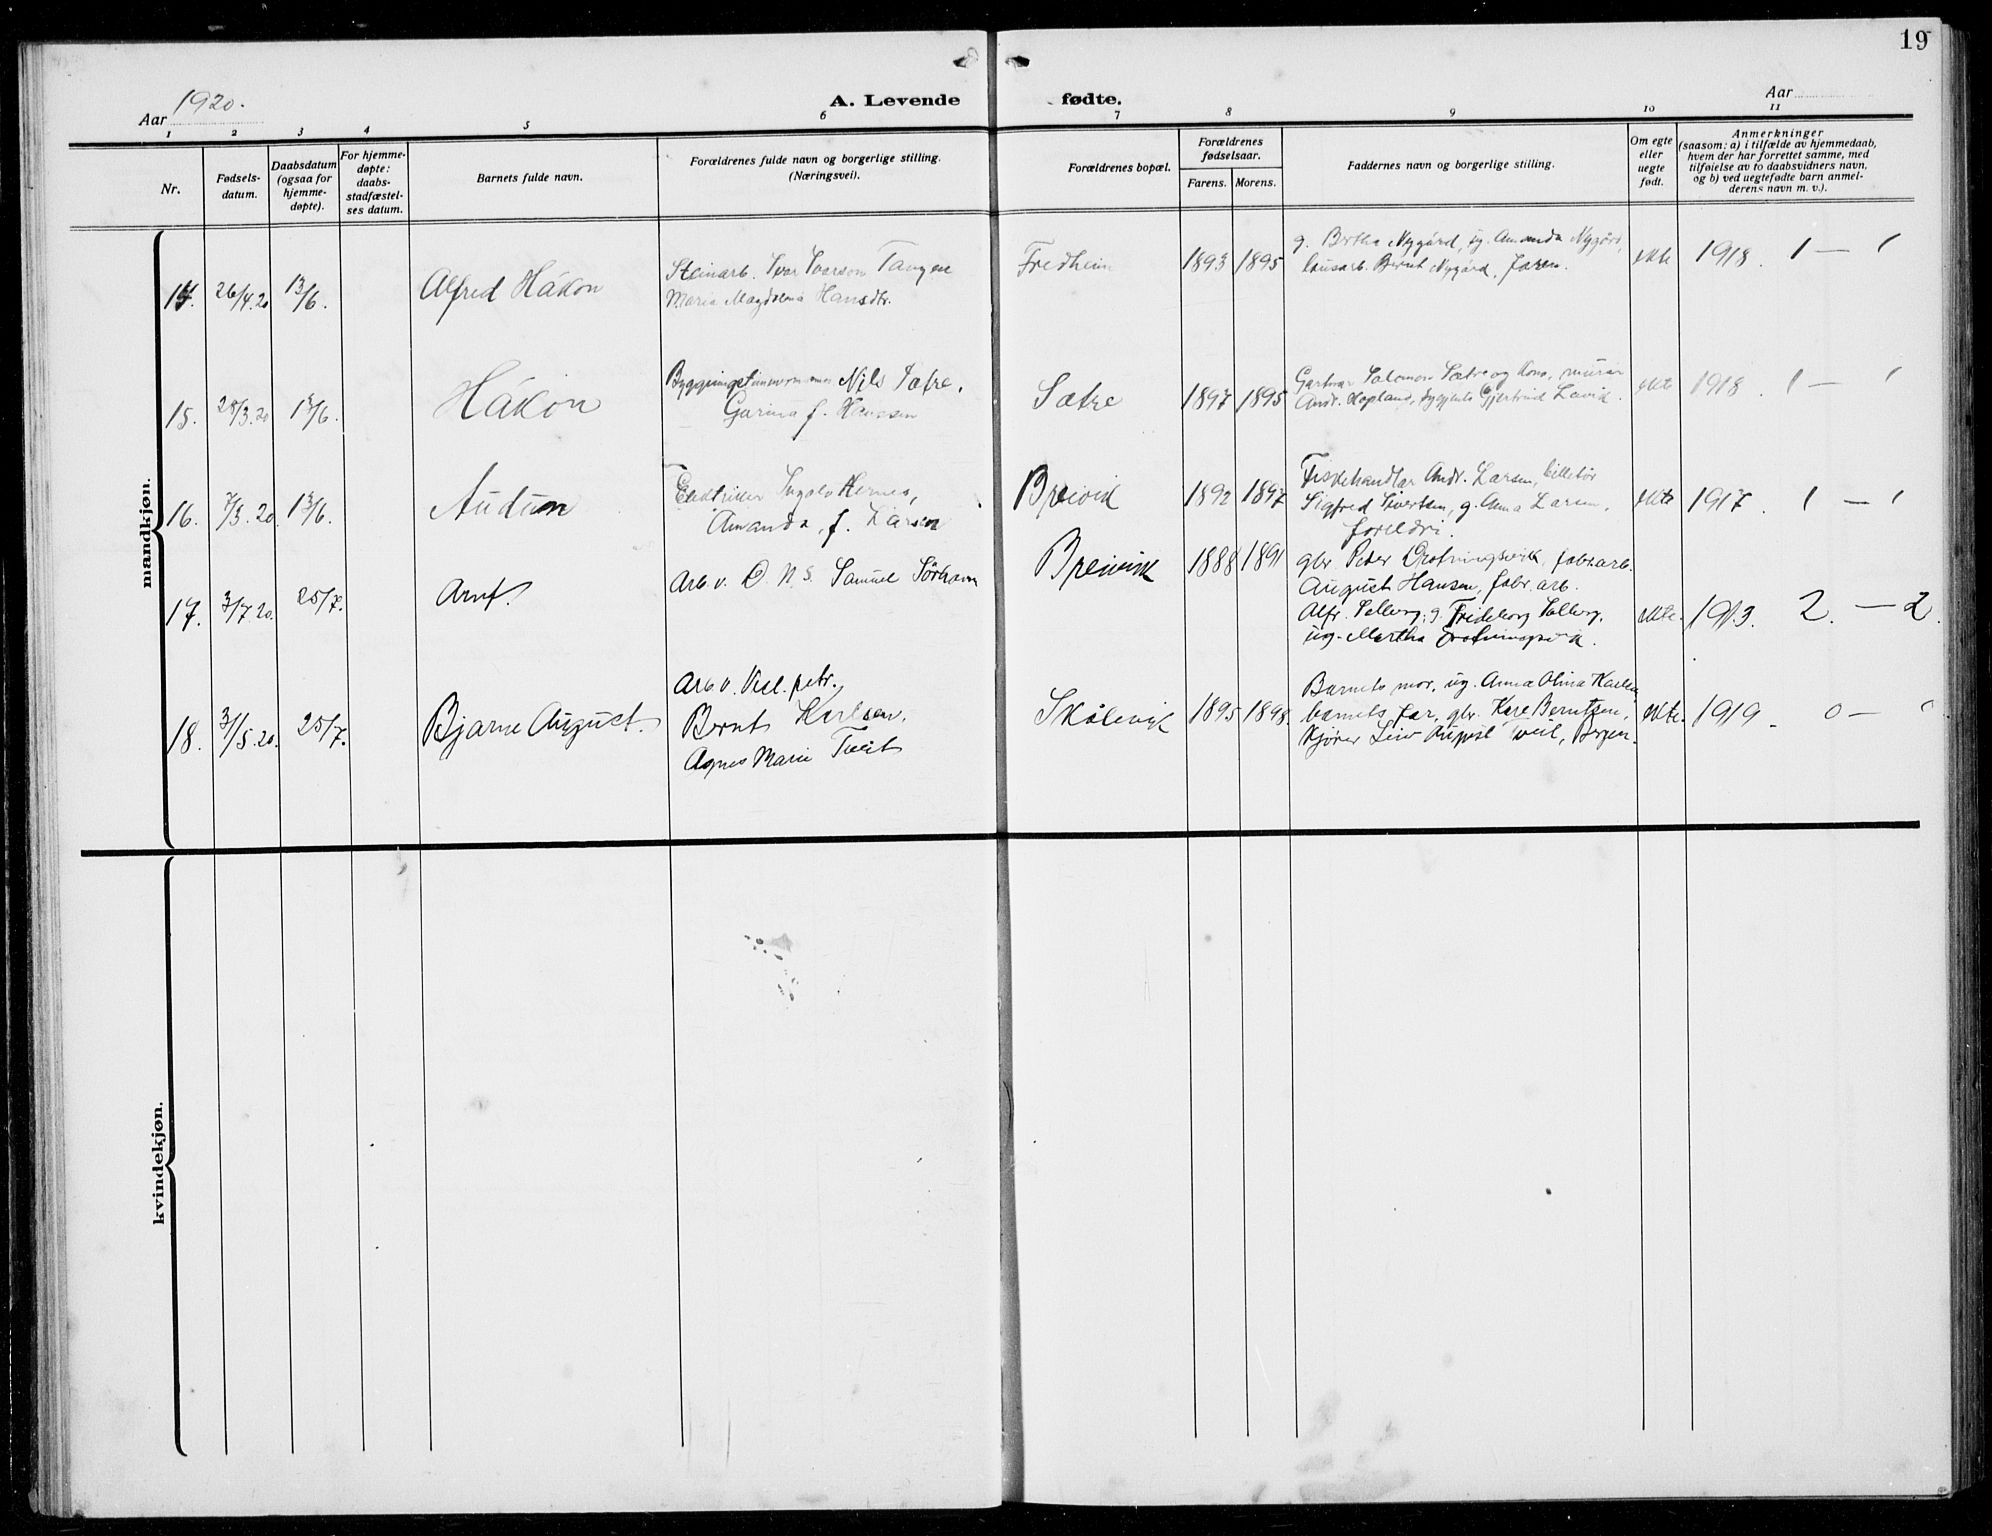 19
Aar 1920.
A. Levende fødte.
Aar
1 2 3 4 5 6 7 8 9 10 11
Nr.
Fødsels-
datum.
Daabsdatum
(ogsaa for
hjemme-
døpte).
For hjemme-
døpte:
daabs-
stadfæstel-
ses datum.
Barnets fulde navn.
Forældrenes fulde navn og borgerlige stilling.
(Næringsvei).
Forældrenes bopæl.
Forældrenes
fødselsaar.
Farens. Morens.
Faddernes navn og borgerlige stilling.
Om egte
eller
uegte
født.
Anmerkninger
(saasom: a) i tilfælde av hjemmedaab,
hvem der har forrettet samme, med
tilføielse av to daabsvidners navn,
og b) ved uegtefødte barn anmel-
derens navn m. v.).
mandkjøn.
14. 26/4.20 13/6. Alfred Håkon
Steinarb. Ivar Ivarson Tangen
Maria Magdalena Hansdtr.
Fredheim 1893 1895
g. Bertha Nygård, ug. Amanda Nygård,
lausarb. Bernt Nygård, faren.
ekte 1918. 1 — 1
15. 25/3.20 13/6. Håkon
Nils Sætre.
Garina f. Hanssen
Sætre 1897 1895
Gartnar Salomon Sætre og kona, murar
Andr. Hopland, Gjertrud Leivik.
ekte 1918. 1 — 1
16. 7/3.20. 13/6. Audun
Ingolv Hernes,
Amanda, f. Larsen
Breivik 1892 1897
Fiskehandlar Andr. Larsen,
Sigfred Sivertsen, g. Anna Larsen,
foreldri.
ekte 1917. 1 — 1
17. 3/7 20. 25/7. Arnf.
Arb. v. D. N. S. Samuel
Breivik 1888 1891
gbr. Peter Drotningsvik, fabr.arb.
August Hansen, fabr. arb.
Alfr. Solberg, g. Frideborg Solberg,
ug. Martha Drotningsvik.
ekte. 1913. 2. — 2.
18. 31/5.20. 25/7. Bjarne August.
Arb. v.
Bernt Karlsen.
Agnes Marie Tveit
Skålevik 1895 1898
Barnets mor, ug. Anna Olina Karlsen
barnets far, gbr. Kåre Berntzen,
kjører Leiv August Tveit, Bergen.
ekte. 1919. 0 — 0
kvindekjøn.